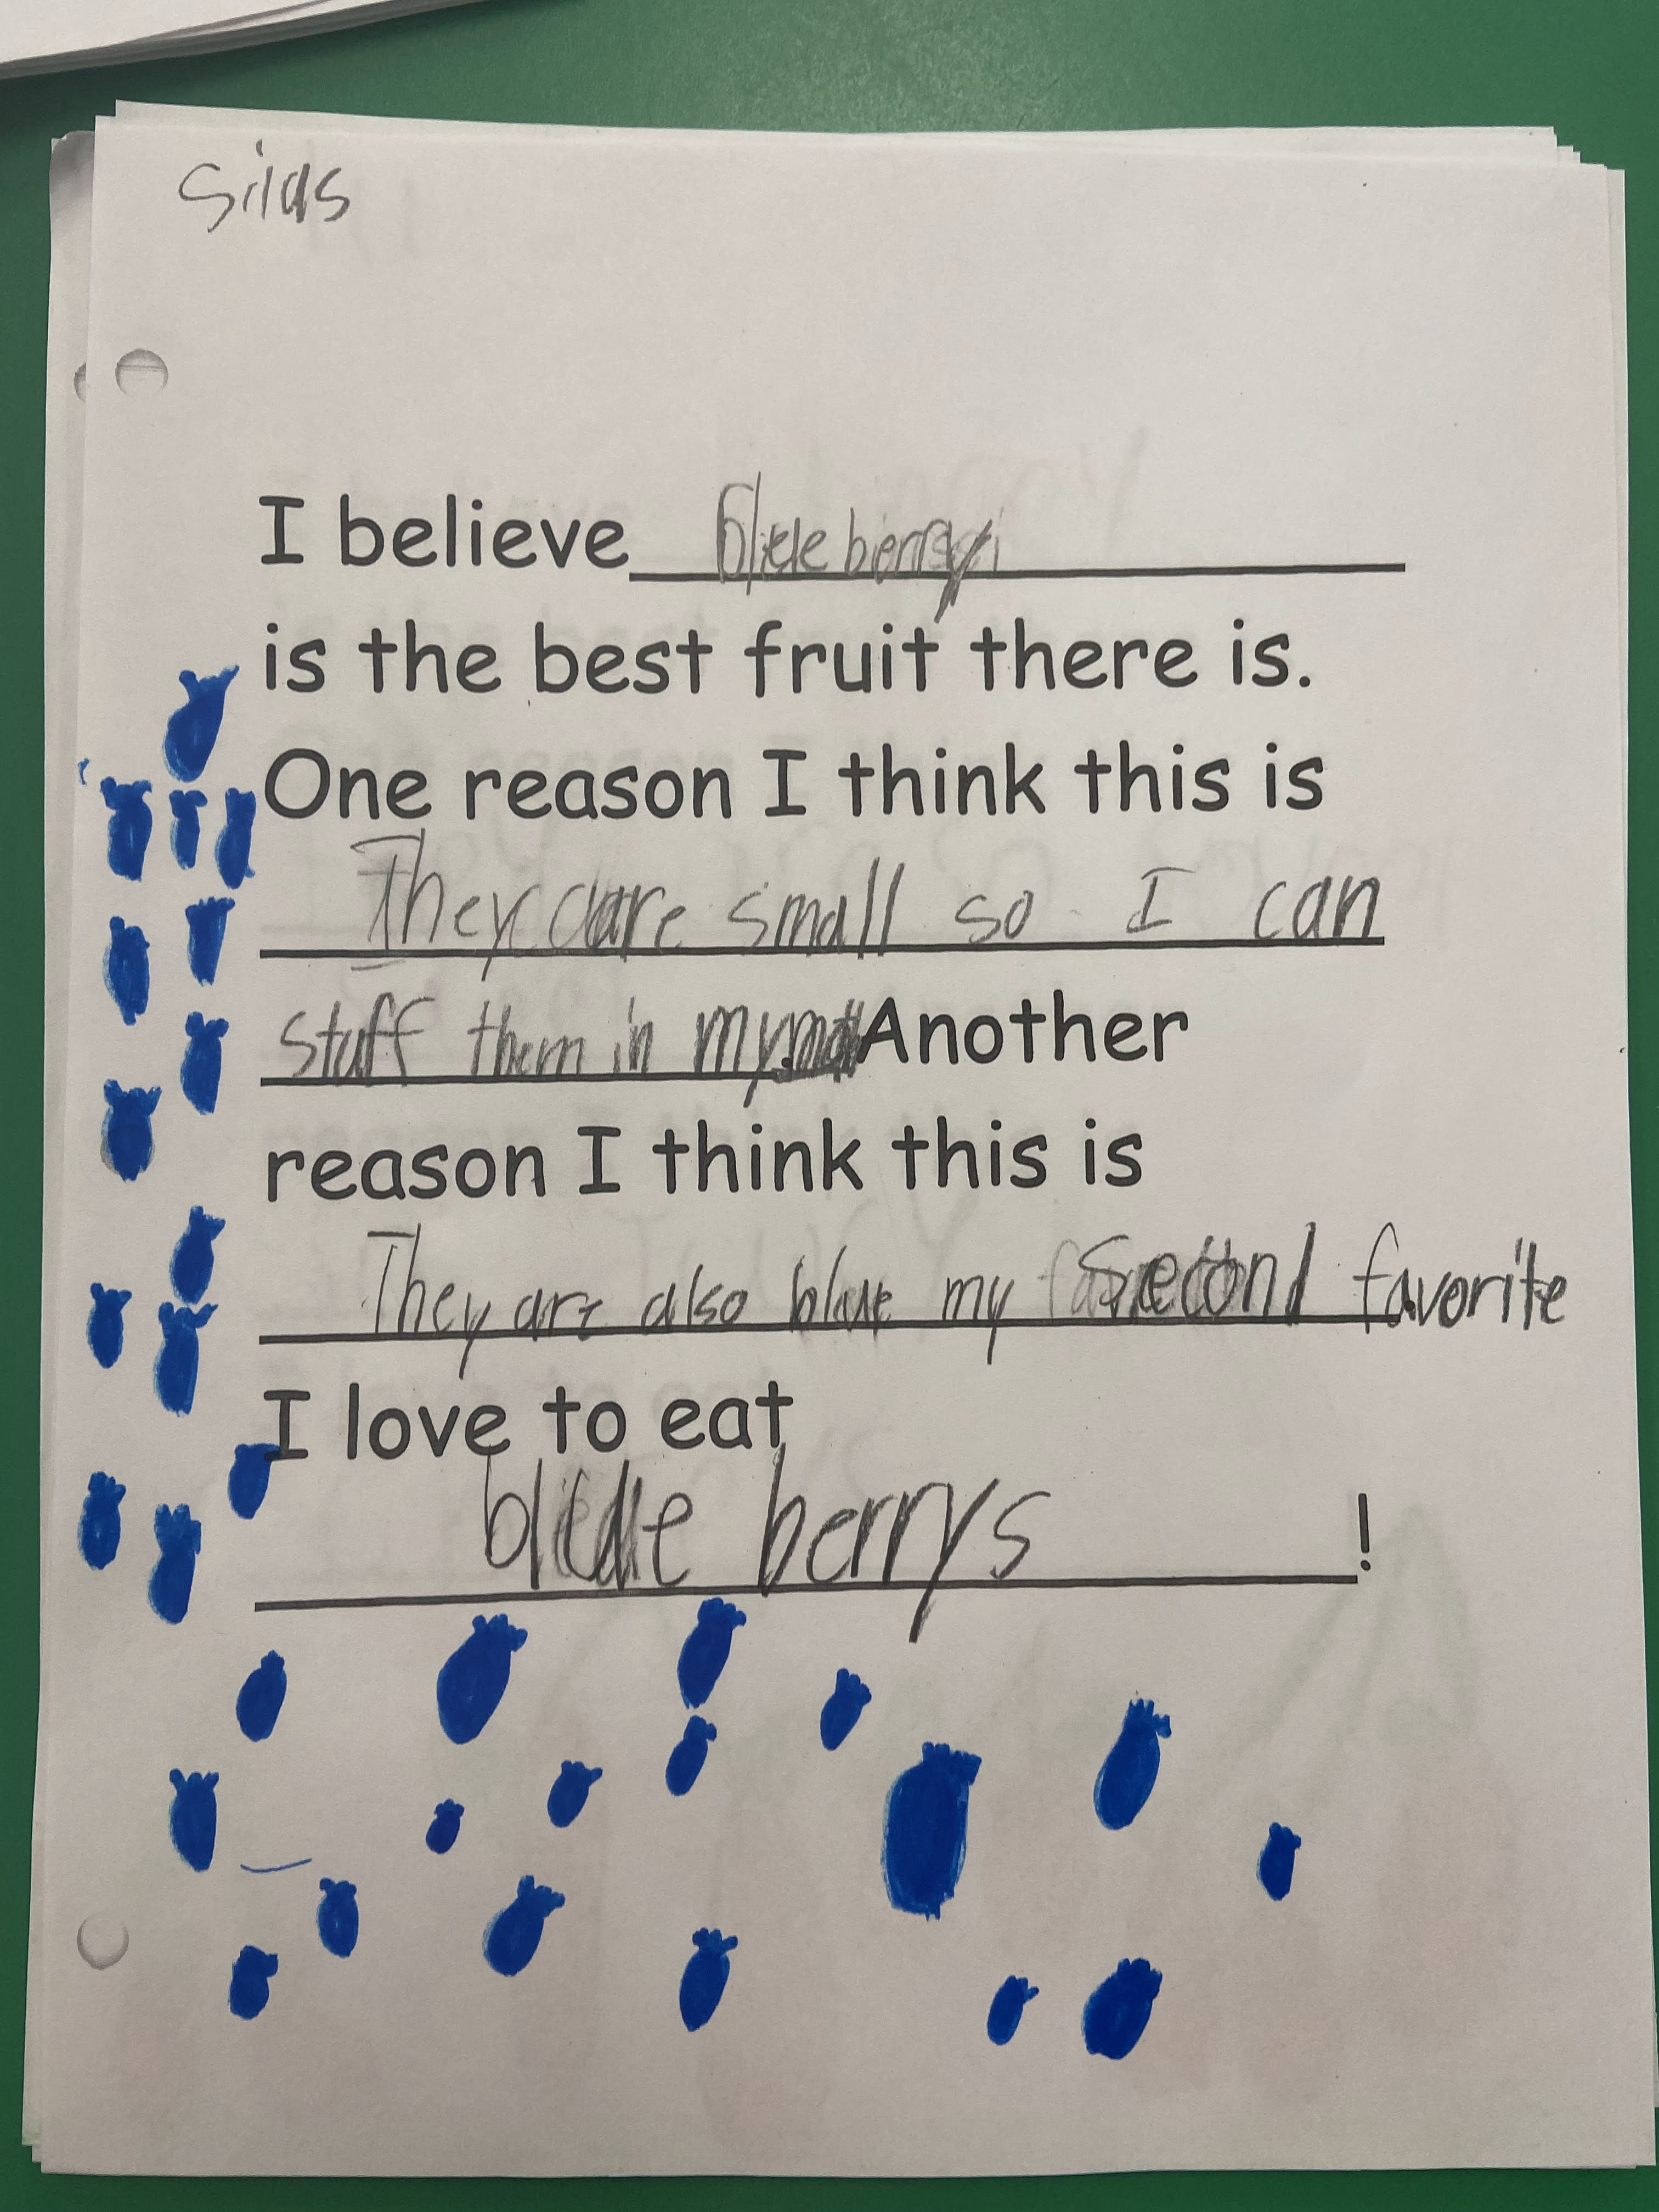 Silas
I believe blue berry
is the best fruit there is.
One reason I think this is
They are small so I can
stuff them in my. Another
reason I think this is
They are also blue my second favorite
I love to eat
blue berrys!